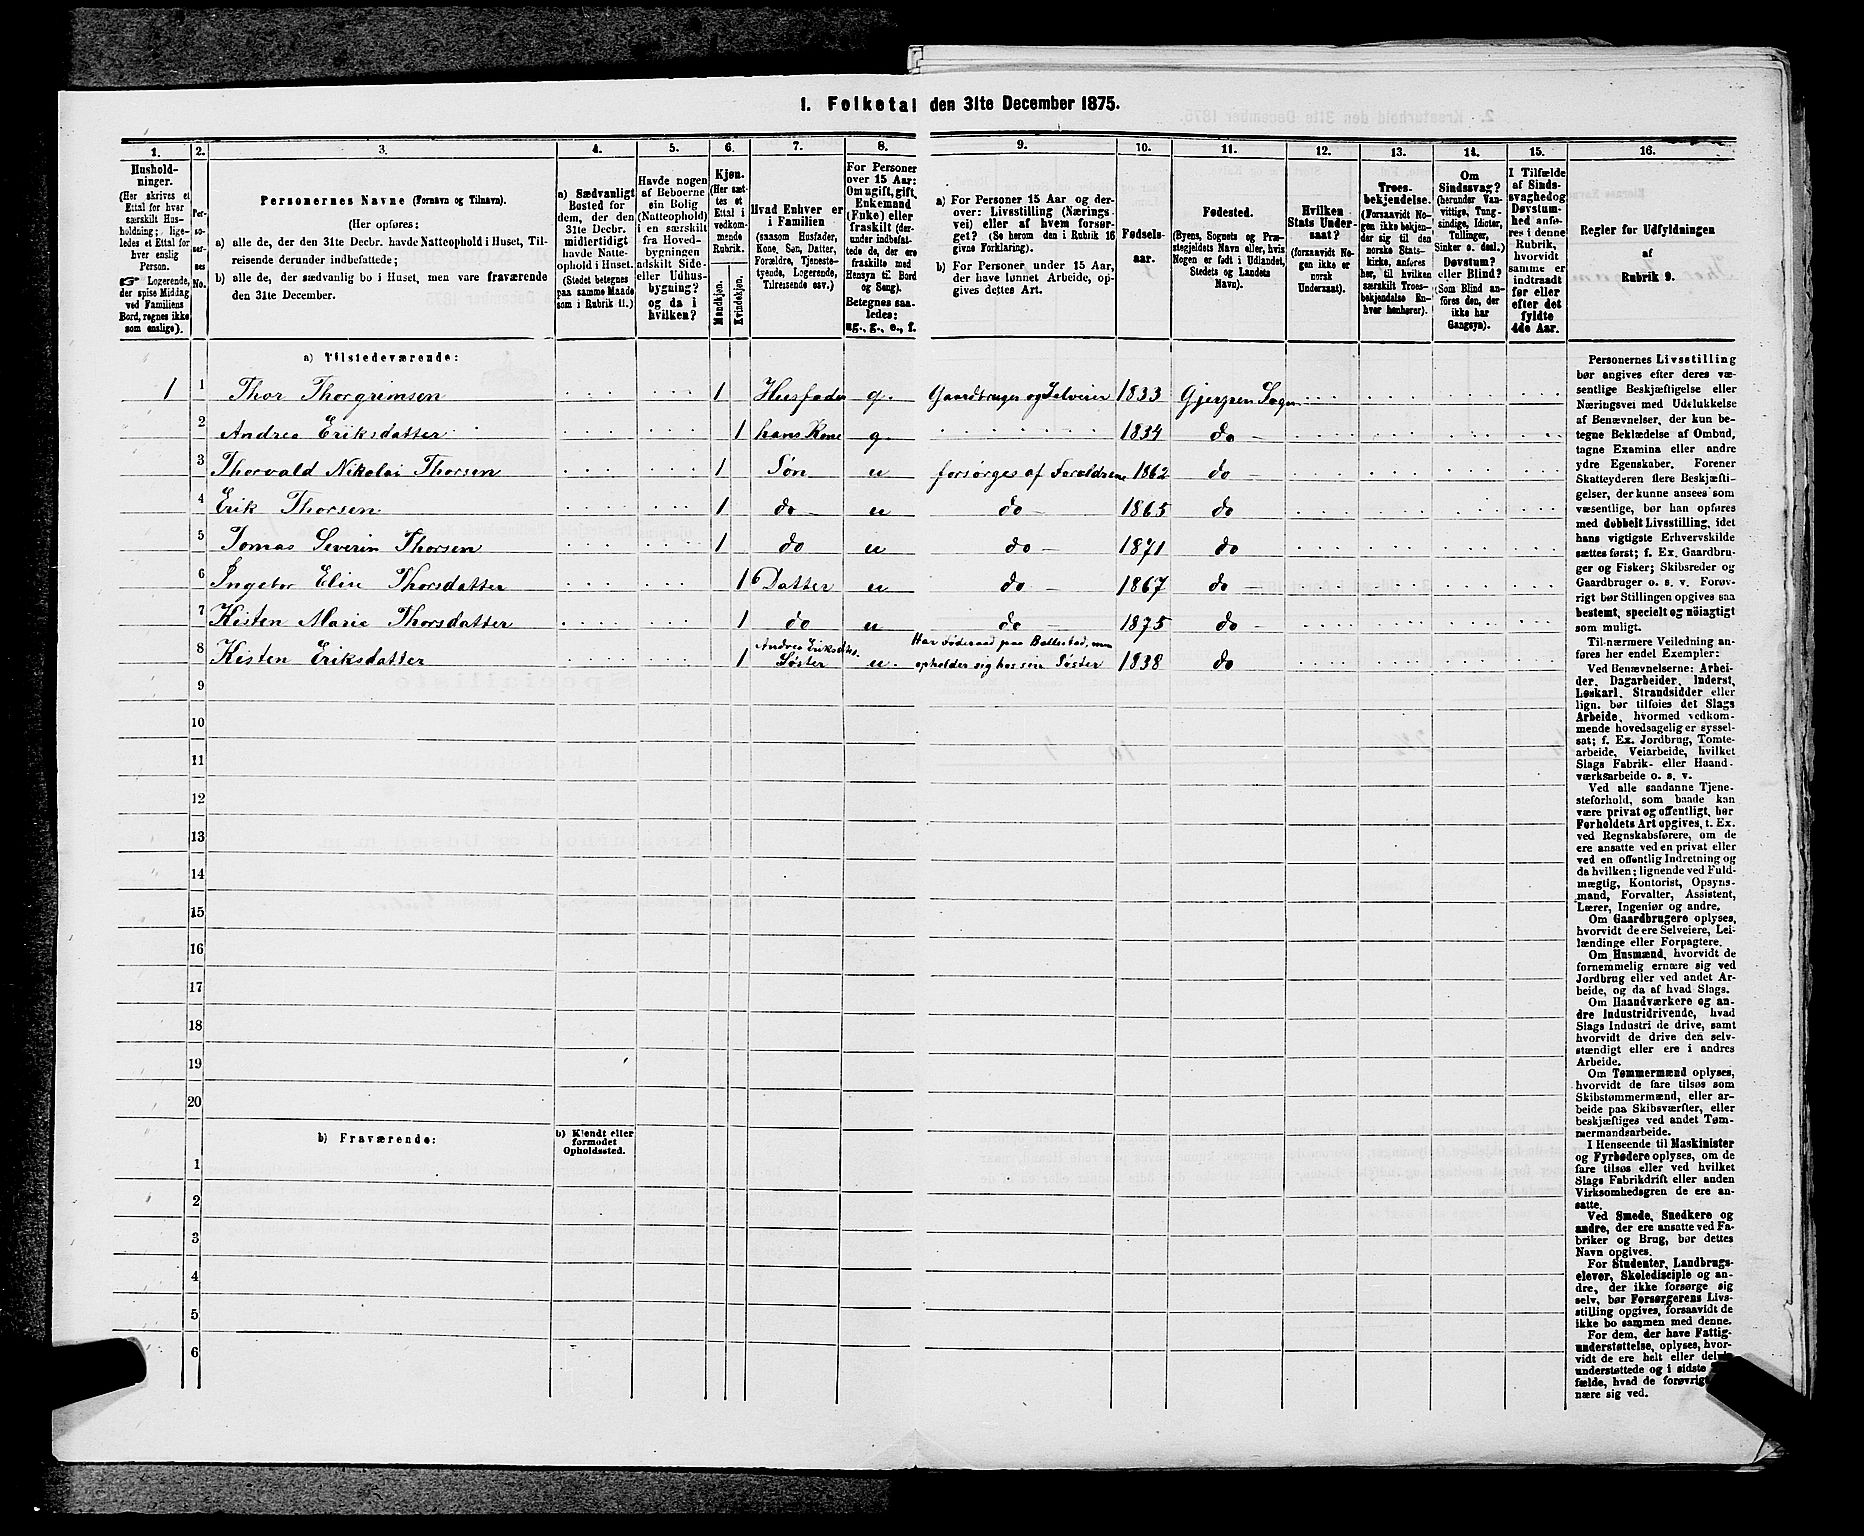 1. Folketal den 31te December 1875.
1.
2.
3.
4.
5.
6.
7.
8.
9.
10.
11.
12.
13.
14.
15.
16.
Hushold-
ninger.
(Her skrives et
Ettal for hver
særskilt Hus-
holdning; lige-
ledes et Ettal for
hver enslig
Person.
☞ Logerende,
der spise Middag
ved Familiens
Bord, regnes ikke
som enslige).
Per-
so-
ner-
nes
No.
Personernes Navne (Fornavn og Tilnavn).
(Her opføres:
a) alle de, der den 31te Decbr. havde Natteophold i Huset, Til-
reisende derunder indbefattede;
b) alle de, der sædvanlig bo i Huset, men vare fraværende
den 31te December.
a) Sædvanligt
Bosted for
dem, der den
31te Decbr.
midlertidigt
havde Natte-
ophold i Huset.
(Stedet betegnes
paa samme Maade
som i Rubrik 11.)
Havde nogen
af Beboerne
sin Bolig
(Natteophold)
i en særskilt
fra Hoved-
bygningen
adskilt Side-
eller Udhus-
bygning?
og da i
hvilken?
Kjøn.
(Her sæt-
tes et
Ettal i
vedkom-
mende
Rubrik.
Mandkjøn.
Kvindekjøn.
Hvad Enhver er
i Familien
(saasom Husfader,
Kone, Søn, Datter,
Forældre, Tjeneste-
tyende, Logerende,
Tilreisende osv.)
For Personer
over 15 Aar:
Om ugift, gift,
Enkemand
(Enke) eller
fraskilt (der-
under indbefat-
tede de, der ere
fraskilte med
Hensyn til Bord
og Seng).
Betegnes saa-
ledes:
ug., g., e., f.
a) For Personer 15 Aar og der-
over: Livsstilling (Nærings-
vei) eller af hvem forsør-
get? (Se herom den i Rubrik 16
givne Forklaring).
b) For Personer under 15 Aar,
der have lønnet Arbeide, op-
gives dettes Art.
Fødsels-
aar.
Fødested.
(Byens, Sognets og Præ-
stegjeldets Navn eller, hvis
Nogen er født i Udlandet,
Stedets og Landets
Navn).
Hvilken
Stats Under-
saat?
(forsaavidt No-
gen ikke er
norsk
Undersaat).
Troes-
bekjendelse.
(Forsaavidt No-
gen ikke bekjen-
der sig til den
norske Stats-
kirke, anføres
her, til hvilken
særskilt Troes-
bekjendelse En-
hver henhører).
Om
Sindssvag?
(herunder Van-
vittige, Tung-
sindige, Idioter,
Tullinger,
Sinker o. desl.)
Døvstum?
eller Blind?
(Som Blind an-
føres den, der
ikke har
Gangsyn).
I Tilfælde
af Sinds-
svaghed og
Døvstum-
hed anfø-
res i denne
Rubrik,
hvorvidt
samme er
indtraadt
før eller
efter det
fyldte
4de Aar.
Regler for Udfyldningen
af
Rubrik 9.
a) Tilstedeværende:
1 1 Thor Thorgrimsen 1 Husfader g. Gaardbruger og Selveier 1833 Gjerpen Sogn
2 Andrea Eriksdatter 1 hans Kone g. 1834 do
3 Thorvald Nikolai Thorsen 1 Søn u forsørges af Forældrene 1862 do
4 Erik Thorsen 1 do u do 1865 do
5 Tomas Severin Thorsen 1 do u do 1871 do
6 Ingebor Elise Thorsdatter 1 Datter u do 1867 do
7 Kisten Marie Thorsdatter 1 do u do 1875 do
8 Kisten Eriksdatter 1 Andrea Eriksdtrs. Søster u. Har Føderaad paa Ballestad, men opholder sig hos sin Søster 1838 do
9
10
11
12
13
14
15
16
17
18
19
20
b) Fraværende:
b) Kjendt eller
formodet
Opholdssted.
1
2
3
4
5
6
Personernes Livsstilling
bør angives efter deres væ-
sentlige Beskjæftigelse eller
Næringsvei med Udelukkelse
af Benævnelser, der kun be-
tegne Beklædelse af Ombud,
tagne Examina eller andre
ydre Egenskaber. Forener
Skatteyderen flere Beskjæfti-
gelser, der kunne ansees som
væsentlige, bør han opføres
med dobbelt Livsstilling, idet
hans vigtigste Erhvervskilde
sættes først; f. Ex. Gaardbru-
ger og Fisker; Skibsreder og
Gaardbruger o. s. v. Forøv-
rigt bør Stillingen opgives saa
bestemt, specielt og nøiagtigt
som muligt.
Til nærmere Veiledning an-
føres her endel Exempler:
Ved Benævnelserne: Arbei-
der, Dagarbeider, Inderst,
Løskarl, Strandsidder eller
lign. bør tilføies det Slags
Arbeide, hvormed vedkom-
mende hovedsagelig er syssel-
sat; f. Ex. Jordbrug, Tomte-
arbeide, Veiarbeide, hvilket
Slags Fabrik- eller Haand-
værksarbeide o. s. v.
Ved alle saadanne Tjene-
steforhold, som baade kan
være privat og offentligt, bør
Forholdets Art opgives, t. Ex.
ved Regnskabsførere, om de
ere ansatte ved en privat eller
ved en offentlig Indretning og
da hvilken; lignende ved Fuld-
mægtig, Kontorist, Opsyns-
mand, Forvalter, Assistent,
Lærer, Ingeniør og andre.
Om Gaardbrugere oplyses,
hvorvidt de ere Selveiere, Lei-
lændinge eller Forpagtere.
Om Husmænd, hvorvidt de
fornemmelig ernære sig ved
Jordbrug eller ved andet Ar-
beide, og da af hvad Slags.
Om Haandværkere og an-
dre Industridrivende, hvad
Slags Industri de drive, samt
hvorvidt de drive den selv-
stændigt eller ere i andres
Arbeide.
Om Tømmermænd oplyses,
hvorvidt de fare tilsøs som
Skibstømmermænd, eller ar-
beide paa Skibsværfter, eller
beskjæftiges ved andet Tøm-
mermandsarbeide.
I Henseende til Maskinister
og Fyrbødere oplyses, om de
fare tilsøs eller ved hvilket
Slags Fabrikdrift eller anden
Virksomhedsgren de ere an-
satte.
Ved Smede, Snedkere og
andre, der ere ansatte ved Fa-
briker og Brug, bør dettes
Navn opgives.
For Studenter, Landbrugs-
elever, Skoledisciple og an-
dre, der ikke forsørge sig
selv, bør Forsørgerens Livs-
stilling opgives, forsaavidt de
ikke bo sammen med denne.
For dem, der have Fattig-
understøttelse, oplyses, hvor-
vidt de ere helt eller delvis
understøttede og i sidste
fælde, hvad de forøvrigt
nære sig ved.